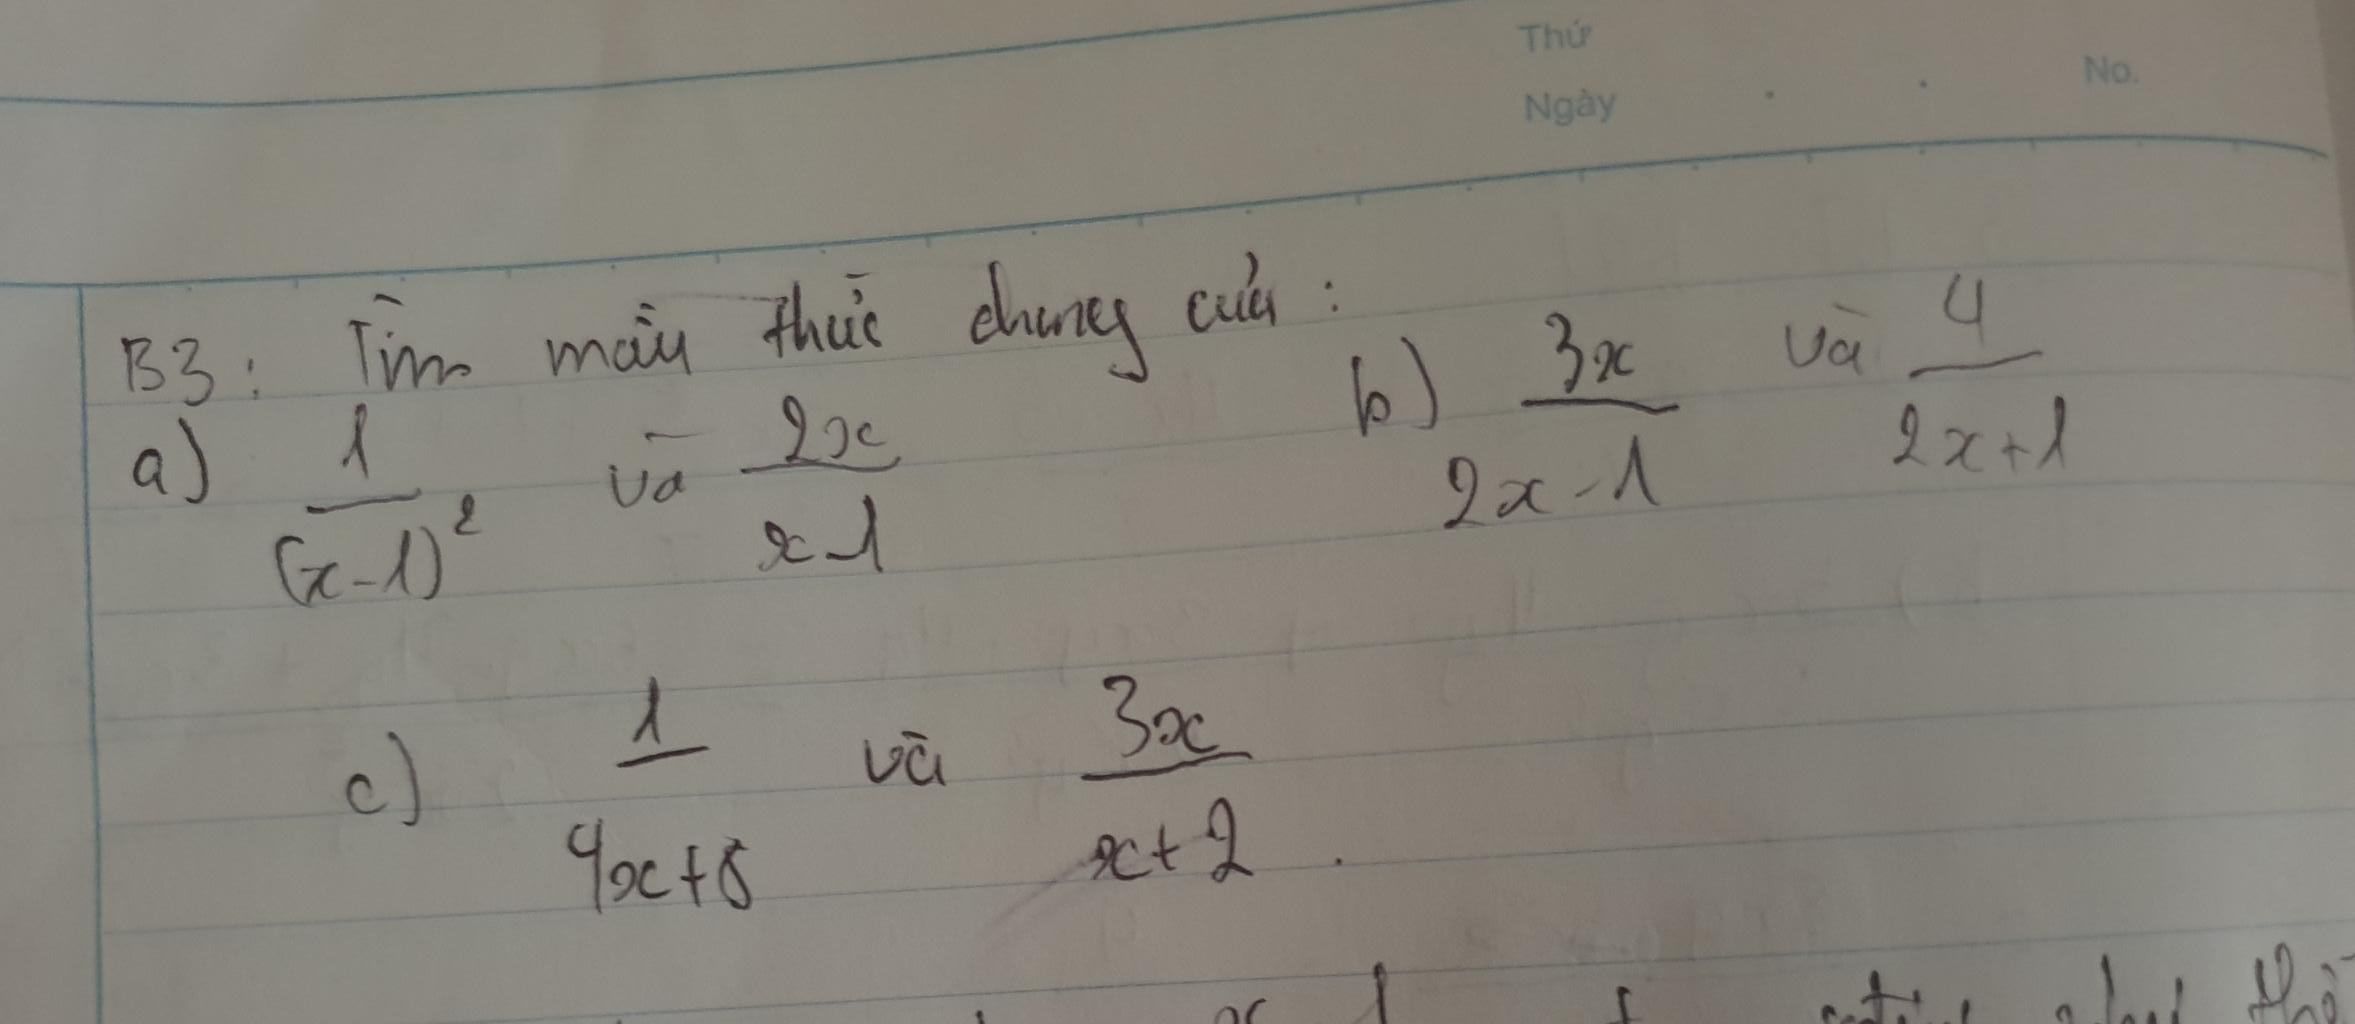 Thứ
Ngày . . No.
B3: Tìm mẫu thức chung của:
a) 1/(x-1)² và 2x/x-1 b) 3x/2x-1 và 4/2x+1
c) 1/4x+8 và 3x/x+2 .